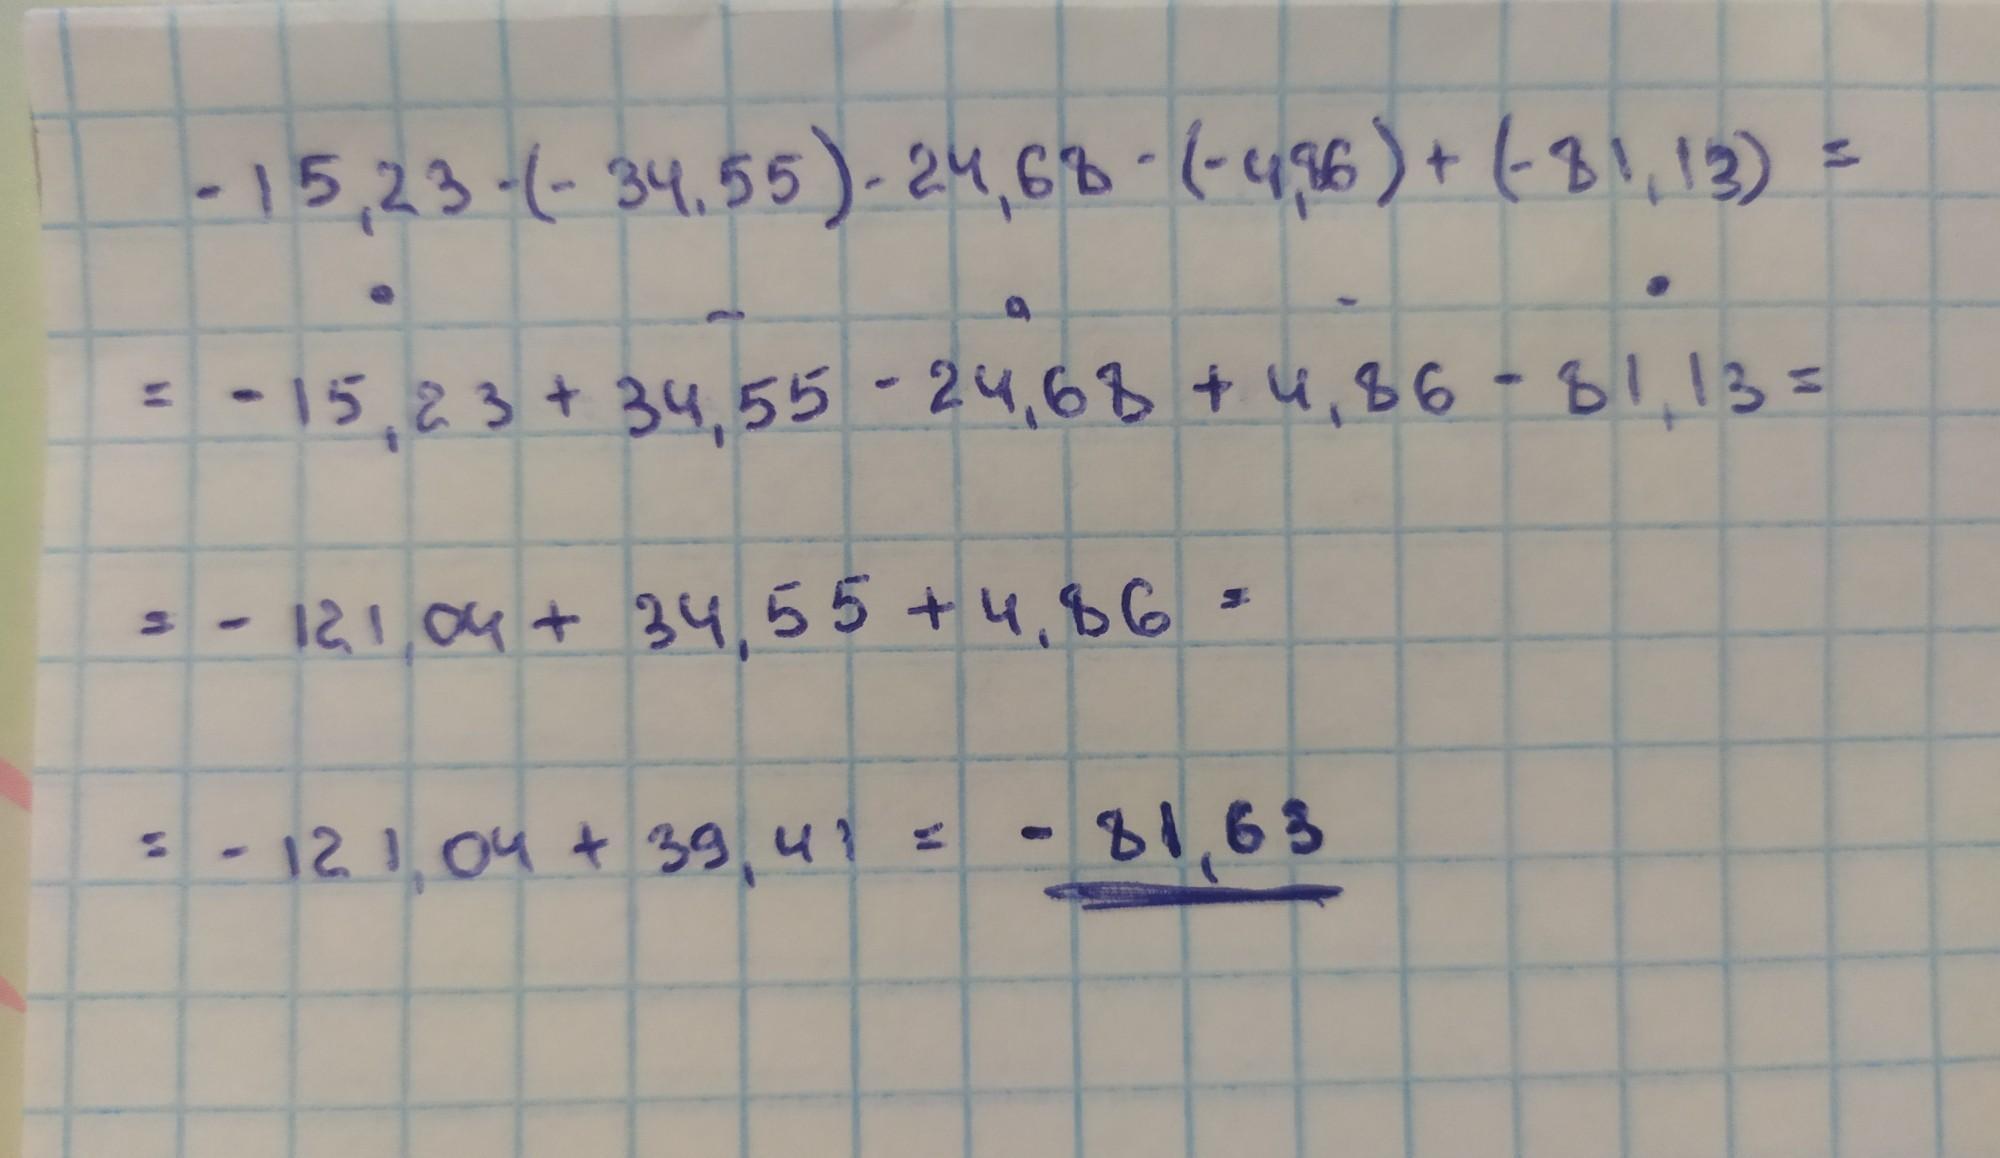 -15,23-(-34,55)-24,68-(-4,86)+(-81,13)=
=-15,23+34,55-24,68+4,86-81,13=
=-121,04+34,55+4,86=
=-121,04+39,41=-81,63